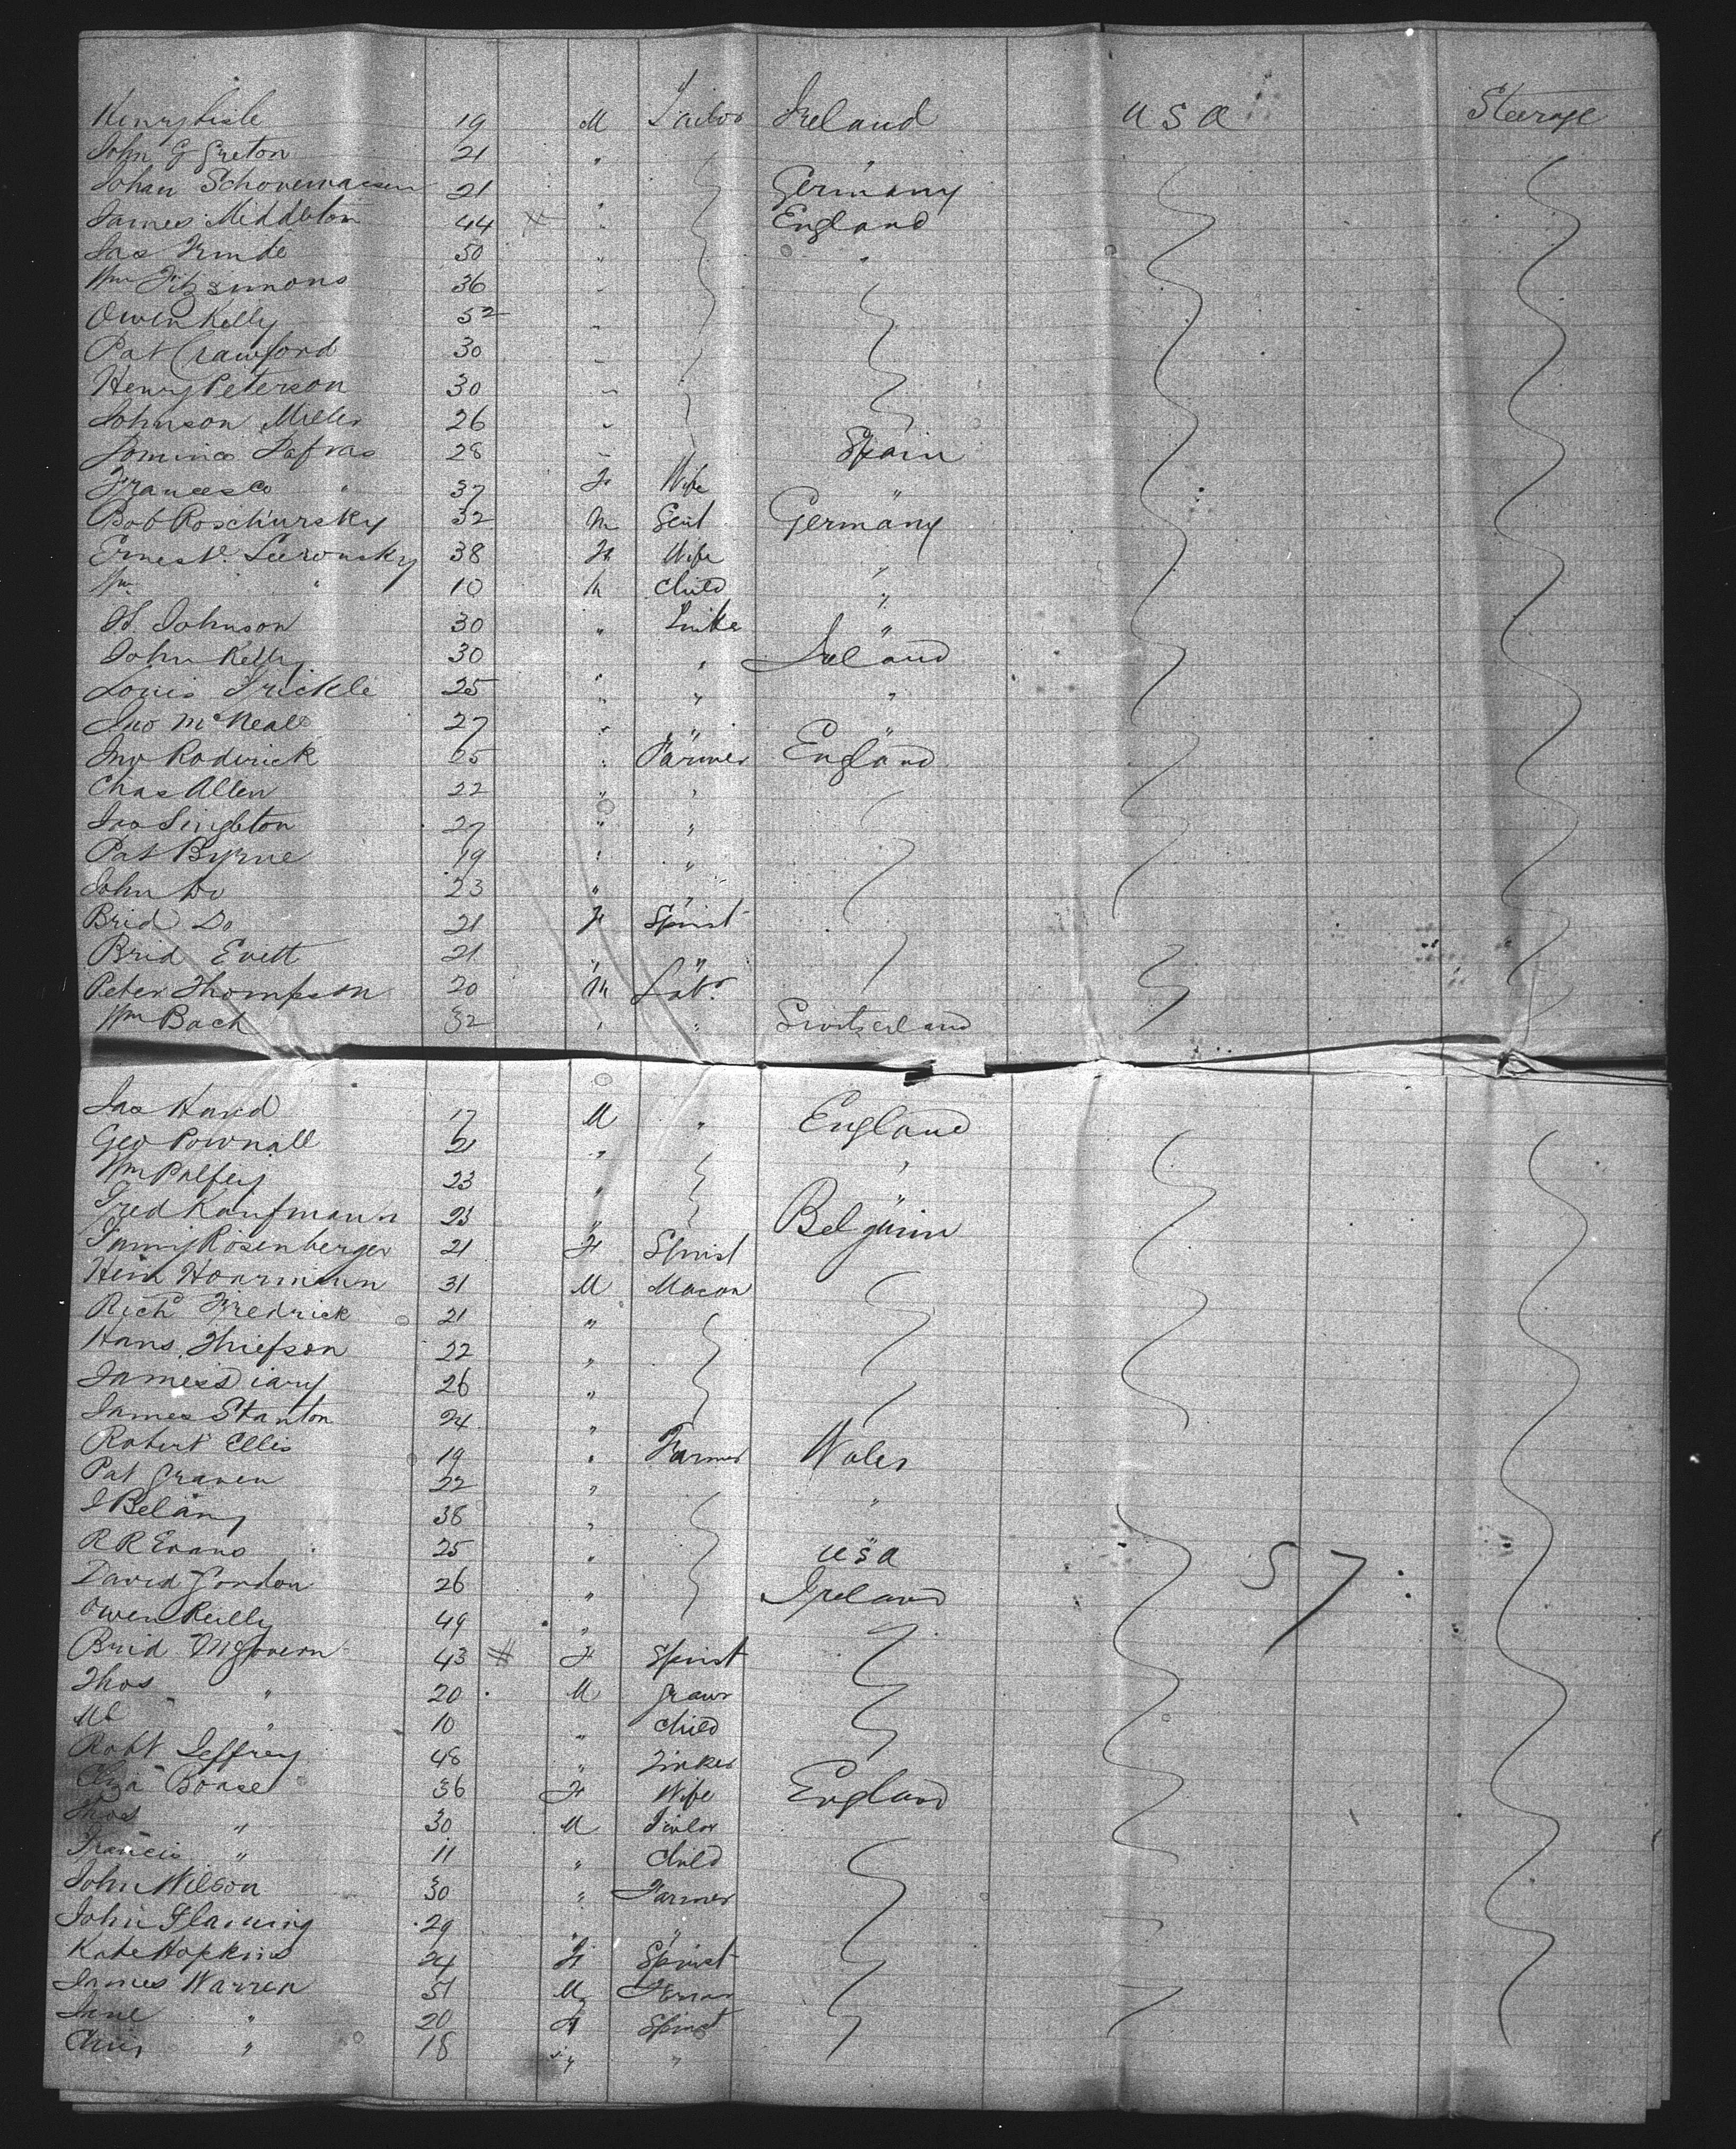 Henry Lisle 19 M Tailor Ireland U S A Steerage
John G Greton 21 " "
Johan 21 " Germany
James Middleton 44 " England
Jas 50 " "
Wm Fitzsimons 36 "
Owen Kelly 52 "
Pat Crawford 30 "
Henry Peterson 30 "
Johnson Miller 26 "
28 " Spain
Francesco " 37 F Wife "
Bob Roschursky 32 M Gent Germany
Ernest. 38 F Wife "
Wm " 10 M Child "
30 " "
John Kelly 30 " " Ireland
Louis Trickle 25 " " "
Jno McNeal 27 " " "
Jno Roderick 25 " Farmer England
Chas Allen 22 " "
Jas Singleton 27 " "
Pat Byrne 19 " "
John Do 23 " "
Brid Do 21 F Spinst
Brid Evett 21 " "
Peter Thompson 20 M Labr
Wm Bach 32 " " Switzerland
Jas Hand 17 M " England
Geo Pownall 21 " "
Wm Palfery 23 " "
Fred Kaufmann 23 " Belguim
Fanny Rosenberger 21 F Spinst
31 M Mason
Richd Fredrick 21 "
Hans 22 "
James 26 "
James Stanton 24 "
Robert Ellis 19 " Farmer Wales
Pat Graven 22 " "
38 "
R R Evans 25 " U S A
David Gordon 26 " Ireland
Owen Reilly 49 "
Brid McGovern 43 F Spinst
Thos " 20 M
" 10 " Child
Robt Jeffrey 48 " Tinker
Eliza Boase 36 F Wife England
Thos " 30 M
Francis " 11 " Child
John Wilson 30 " Farmer
John Flaming 29 " "
Kate Hopkins 24 F Spinst
James Warren 51 M
Jane " 20 F Spinst
" 18 " "
57